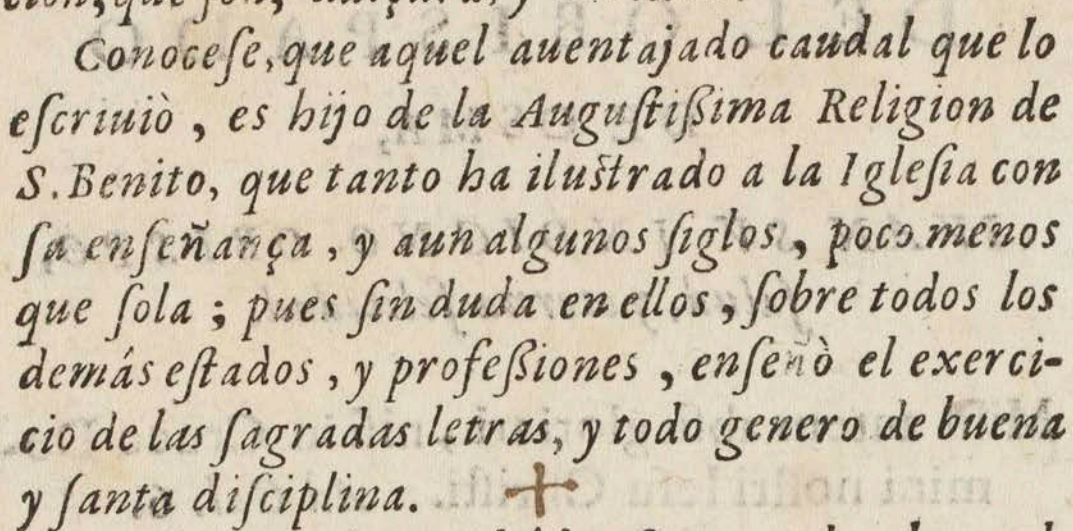 Conoceſe, que aquel auentajado caudal que lo
eſcriuiò, es hijo de la Auguſtiſsima Religion de
S. Benito, que tanto ha iluſtrado a la Igleſia con
ſa enſeñança, y aun algunos ſiglos, poco menos
que ſola; pues ſin duda en ellos, ſobre todos los
demás eſtados, y profeſsiones, enſeñò el exerci-
cio de las ſagradas letras, y todo genero de buena
y ſanta diſciplina.